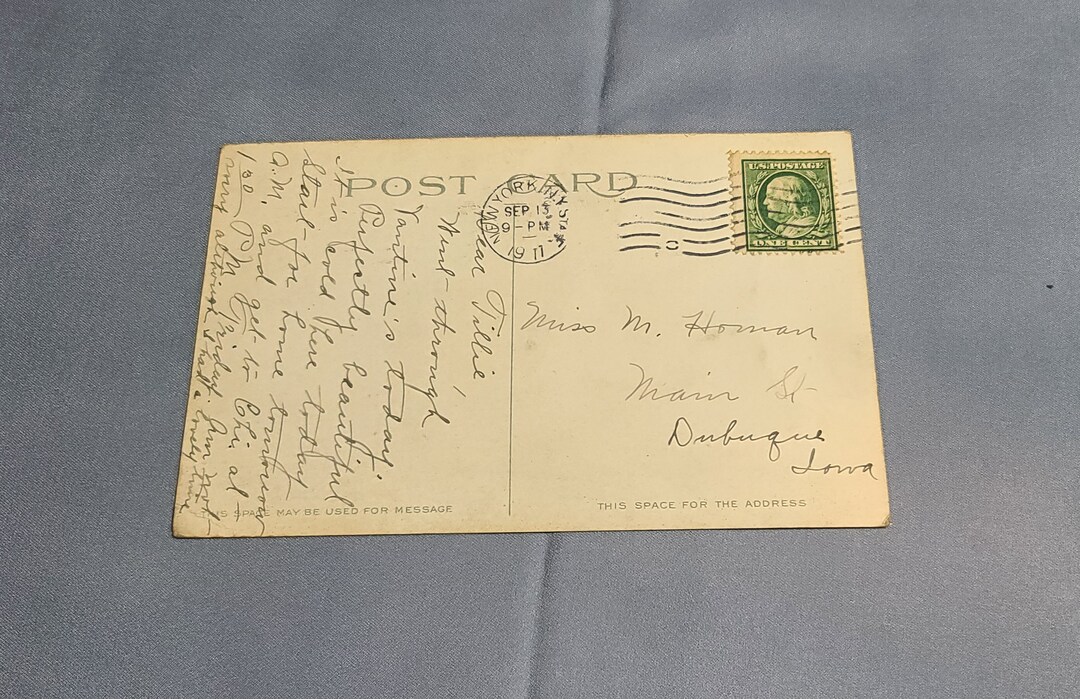 POST CARD
U.S. POSTAGE
ONE CENT
NEW YORK, N.Y.
SEP 13
9-PM
1911
Dear Tillie,
Went through
Vantine's today.
Perfectly beautiful
It is cold here today
Start for home tomorrow
A.M. and get to Chi. at
1:30 P.M. Friday. Am not
sorry although I had a lovely time
Miss M. Homan
Main St
Dubuque
Iowa
SPACE MAY BE USED FOR MESSAGE
THIS SPACE FOR THE ADDRESS